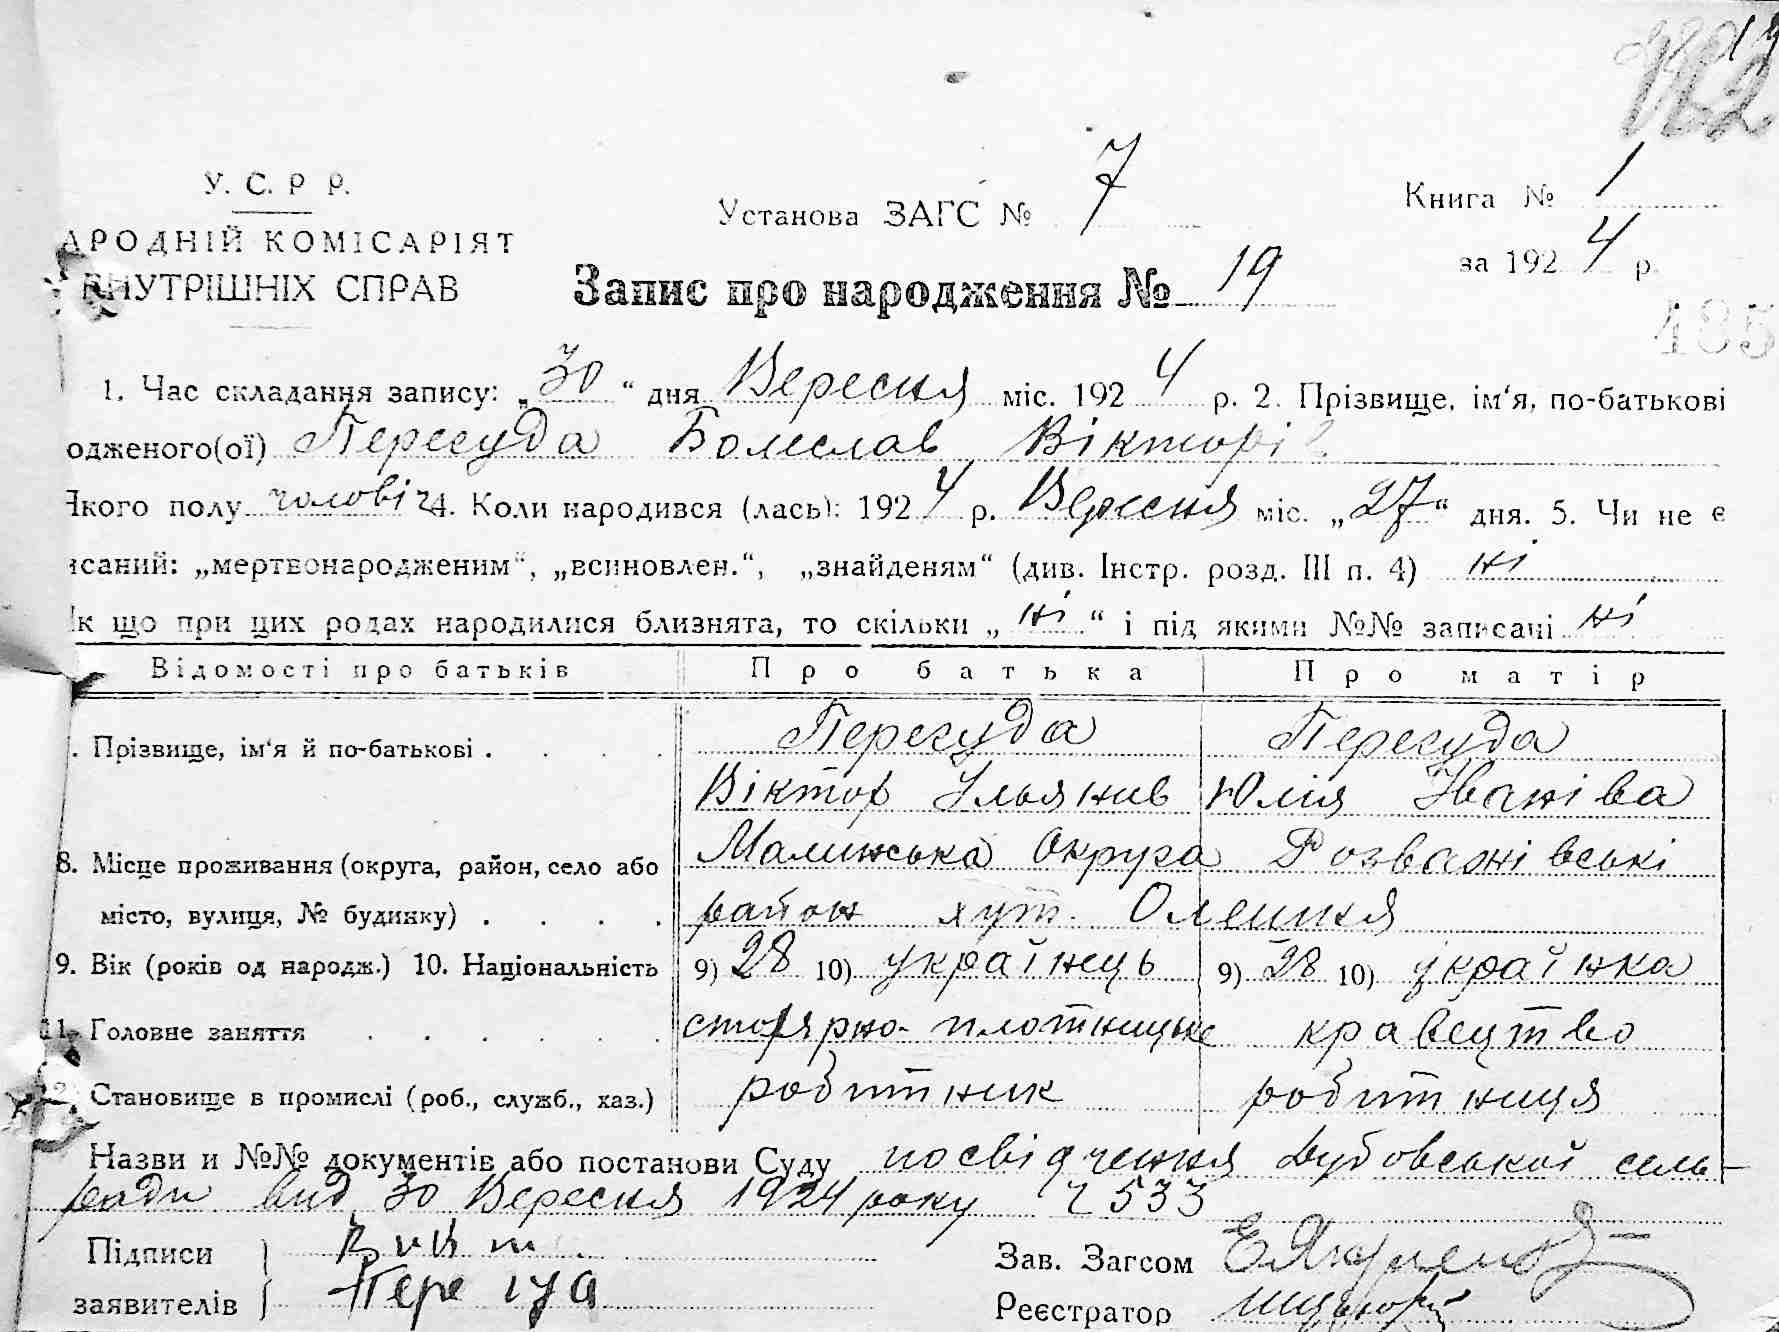 19
122
У. С. Р Р.
АРОДНІЙ КОМІСАРІЯТ
ВНУТРІШНІХ СПРАВ
Установа ЗАГС № 7
Книга № 1
за 1924 р.
Запис про народження № 19
485
1. Час складання запису: „30“ дня Вересня міс. 1924 р. 2. Прізвище, ім'я, по-батькові
одженого(ої) Перегуда Болеслав Вікторів
Якого полу чоловіч 4. Коли народився (лась): 1924 р. Вересня міс. „27“ дня. 5. Чи не є
исаний: „мертвонародженим“, „всиновлен.“, „знайденям“ (див. Інстр. розд. III п. 4) ні
Як що при цих родах народилися близнята, то скільки „ні“ і під якими №№ записані ні
Відомості про батьків Про батька Про матір
. Прізвище, ім'я й по-батькові . . . . Перегуда Перегуда
Віктор Ульянив Юлія Іваніва
8. Місце проживання (округа, район, село або Малинська Округа Розважівські
місто, вулиця, № будинку) . . . . район хут. Олешня
9. Вік (років од народж.) 10. Національність 9) 28 10) українець 9) 28 10) українка
11. Головне заняття . . . . . . столярно-плотницьке кравецтво
2. Становище в промислі (роб., служб., хаз.) робитник робитниця
Назви и №№ документів або постанови Суду посвідчення Дубовської сель-
ради вид 30 Вересня 1924 року ч 533
Підписи Вікт
заявителів Перегуа
Зав. Загсом
Реєстратор